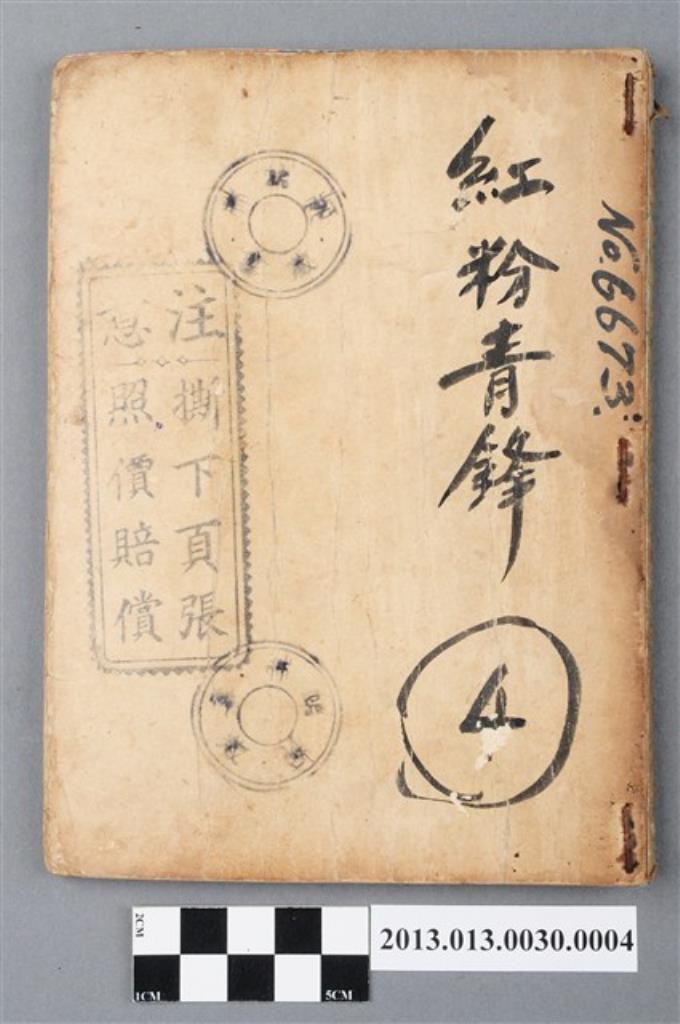 No.6673.
紅粉青鋒
4
注意
撕下頁張
照價賠償
2CM
1CM
5CM
2013.013.0030.0004